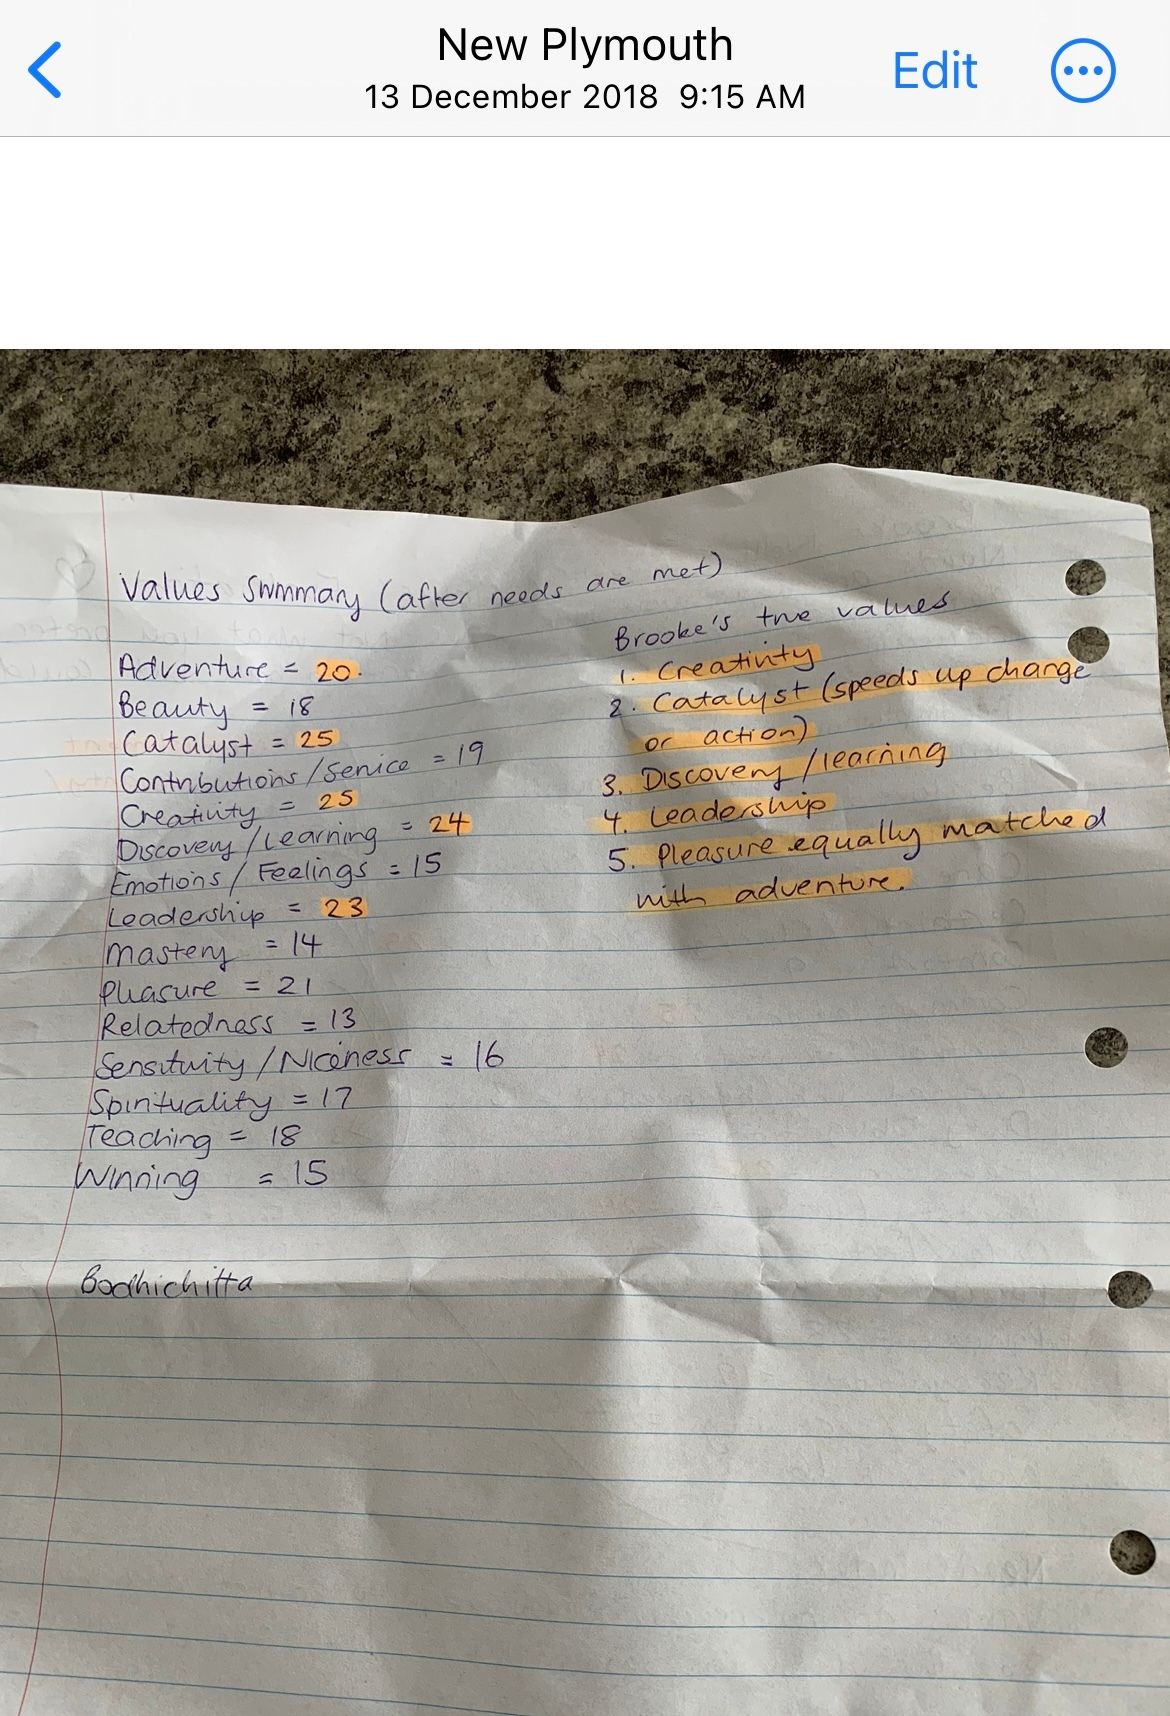 New Plymouth
13 December 2018 9:15 AM
Edit
Values Summary (after needs are met)
Adventure = 20.
Beauty = 18
Catalyst = 25
Contributions/Service = 19
Creativity = 25
Discovery/Learning = 24
Emotions/Feelings = 15
Leadership = 23
Mastery = 14
Pleasure = 21
Relatedness = 13
Sensitivity/Niceness = 16
Spirituality = 17
Teaching = 18
Winning = 15
Bodhichitta
Brooke's true values
1. Creativity
2. Catalyst (speeds up change
or action)
3. Discovery/learning
4. Leadership
5. Pleasure equally matched
with adventure.